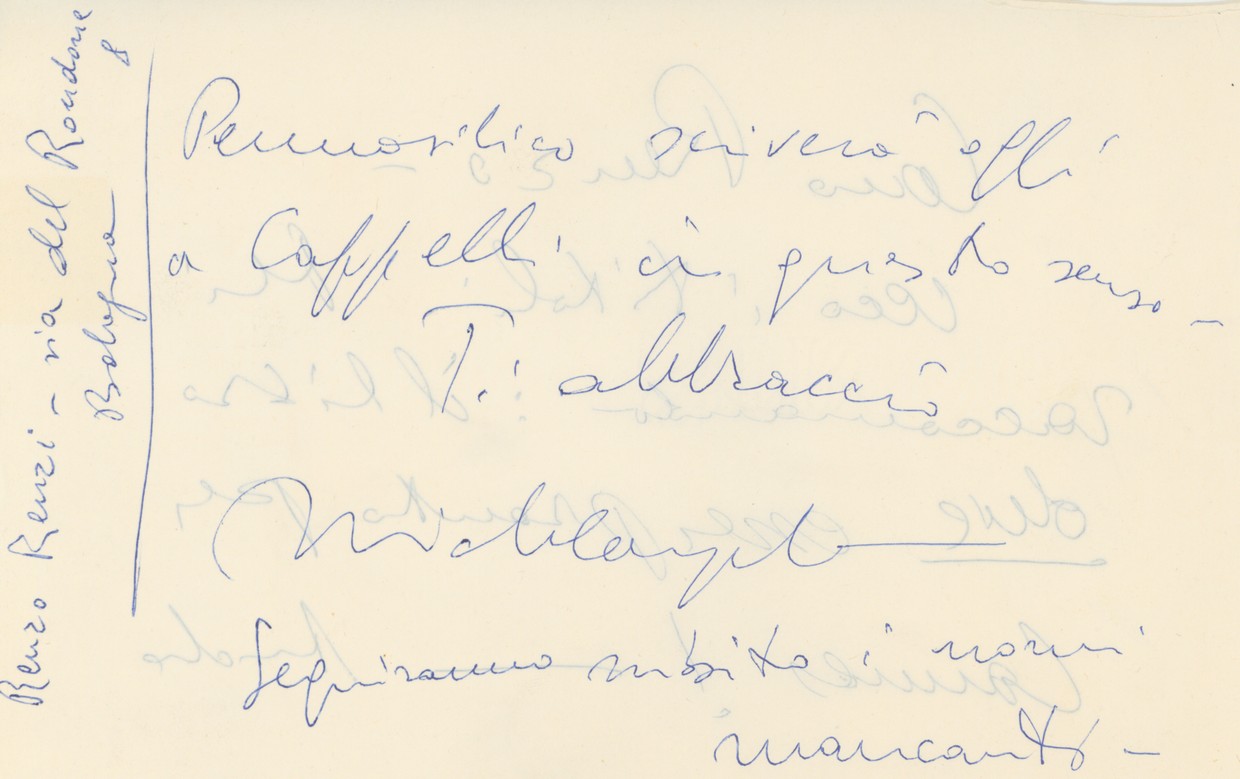 Renzo Renzi – via del Rondone 8
Bologna
Pennosilico scriverà oggi
a Cappelli in questo senso –
Ti abbraccio
Michelangelo
Seguiranno subito i nomi
mancanti –